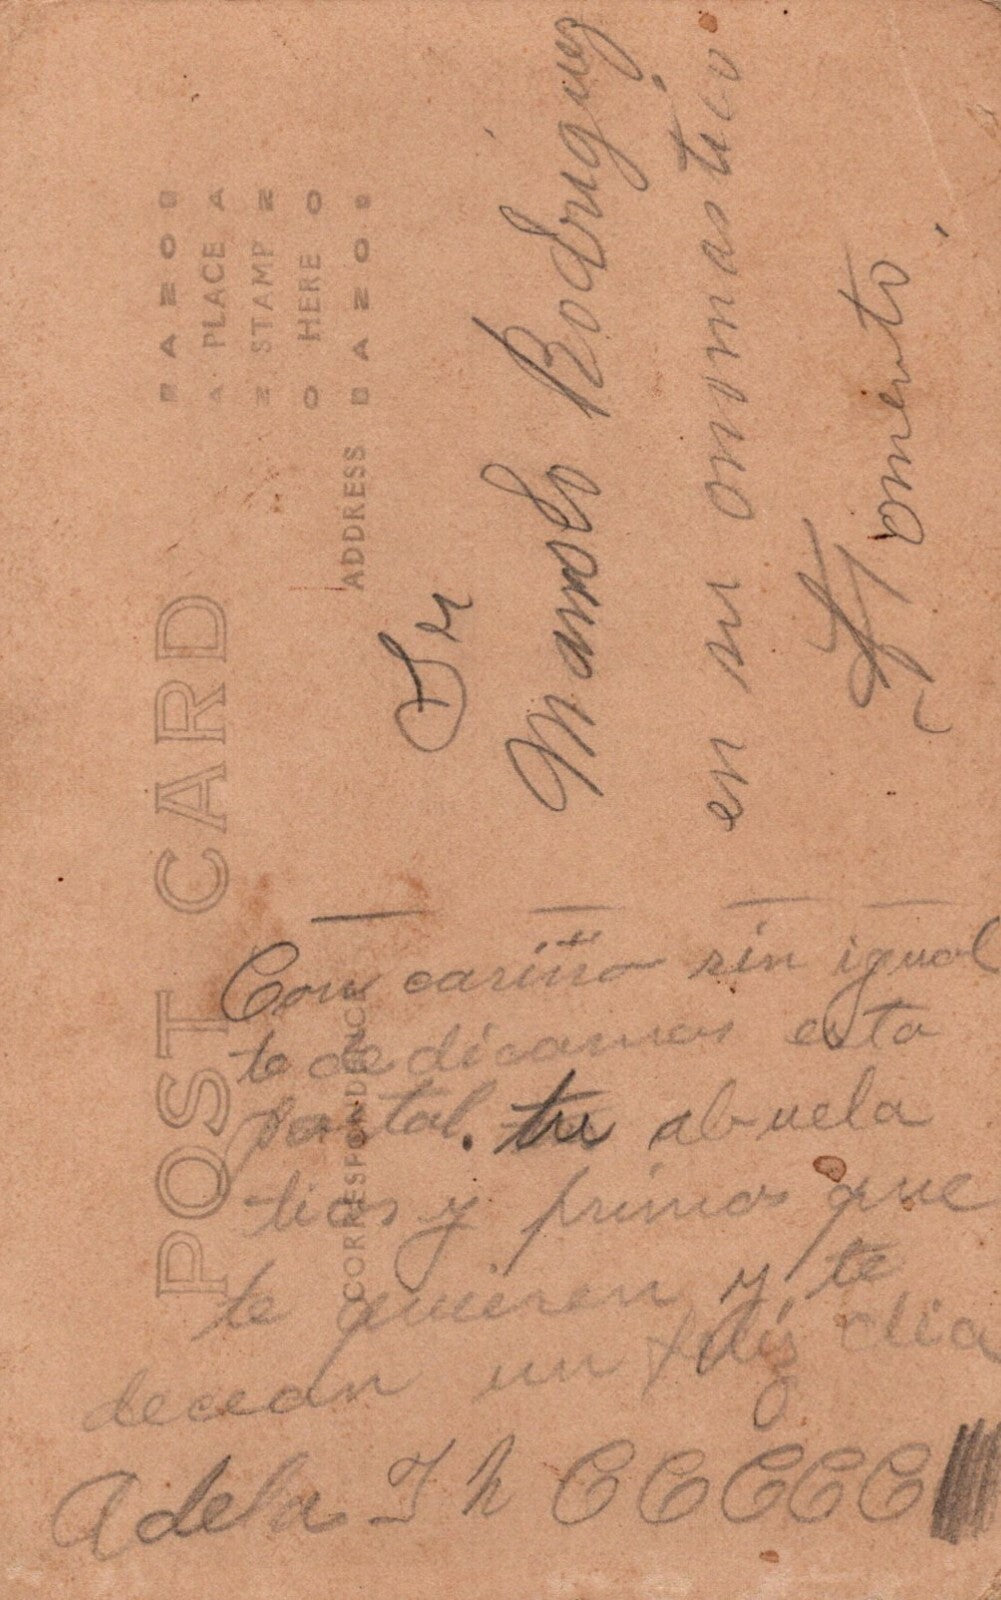 POST CARD
CORRESPONDENCE
ADDRESS
B A Z O B
A PLACE A
Z STAMP Z
O HERE O
B A Z O B
Sr
Manolo Rodriguez
en su onomastico
Con cariño sin igual
te dedicamos esta
postal. tu abuela
tios y primos que
te quieren y te
decean un feliz dia
Adela J h C C C C C